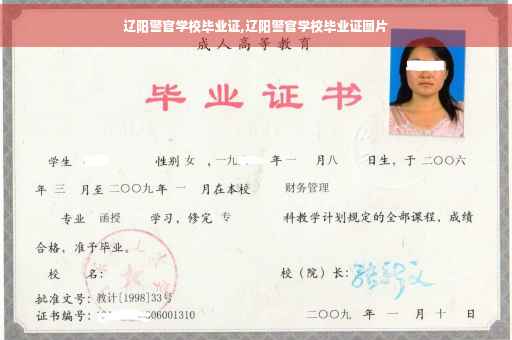 辽阳警官学校毕业证,辽阳警官学校毕业证图片
成人高等教育
毕业证书
学生 性别 女 ,一九 年 一 月八 日生，于 二〇〇六
年 三 月至 二〇〇九 年 一 月在本校 财务管理
专业 函授 学习，修完 专 科教学计划规定的全部课程，成绩
合格，准予毕业。
校 名： 校（院）长：
批准文号：教计[1998]33号
证书编号： 06001310 二〇〇九 年 一 月 十 日